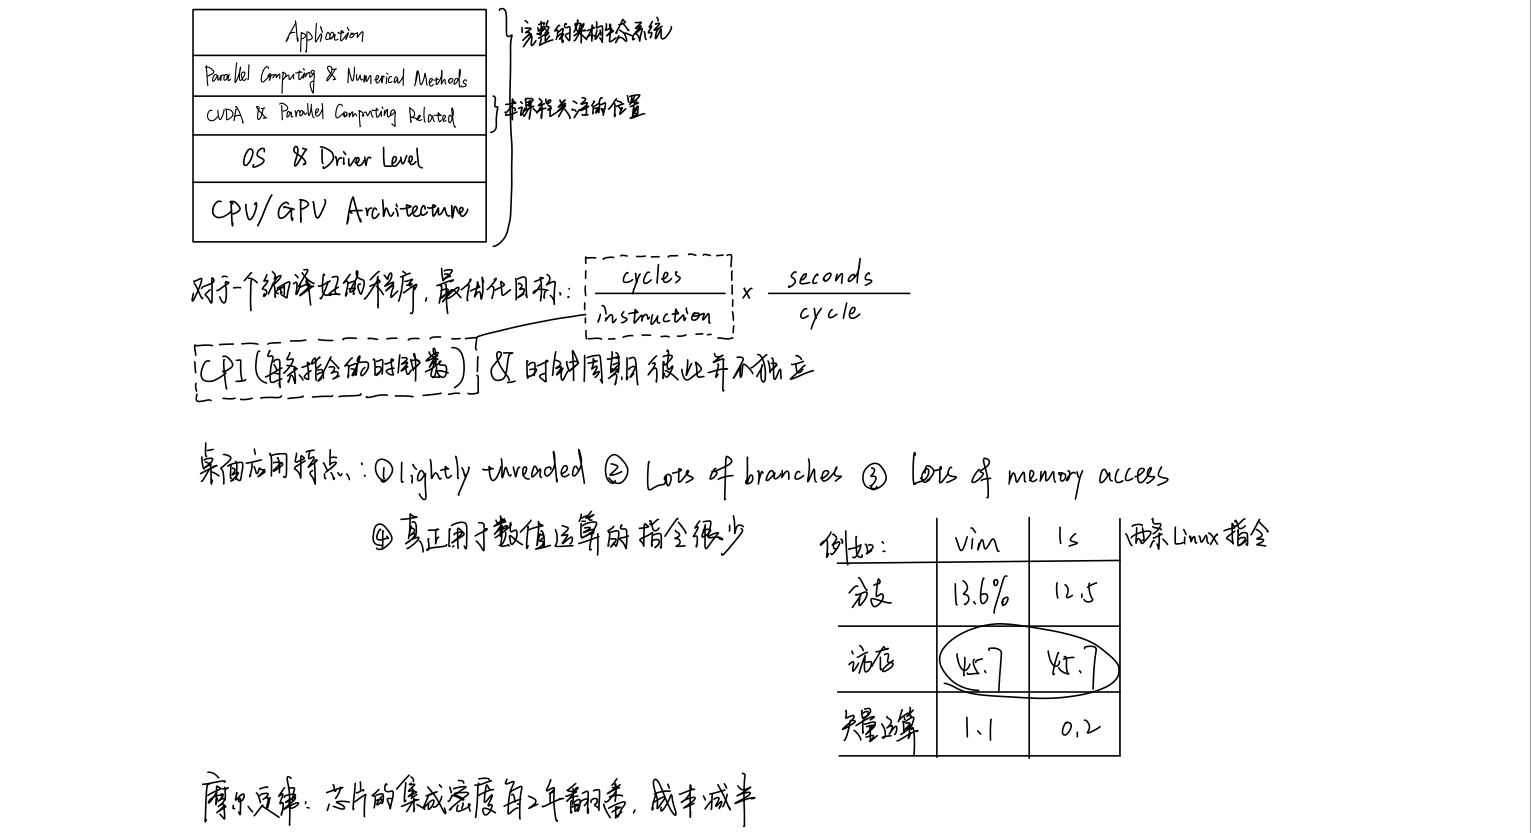 Application
完整的架构生态系统
Parallel Computing & Numerical Methods
CUDA & Parallel Computing Related
本课程关注的位置
OS & Driver Level
CPU/GPU Architecture
对于一个编译好的程序,最优化目标: cycles/instruction × seconds/cycle
CPI(每条指令的时钟数) & 时钟周期彼此并不独立
桌面应用特点: ① lightly threaded ② Lots of branches ③ Lots of memory access
④ 真正用于数值运算的指令很少
例如: vim ls 两条Linux指令
分支 13.6% 12.5
访存 45.7 45.7
矢量运算 1.1 0.2
摩尔定律: 芯片的集成密度每2年翻番,成本减半